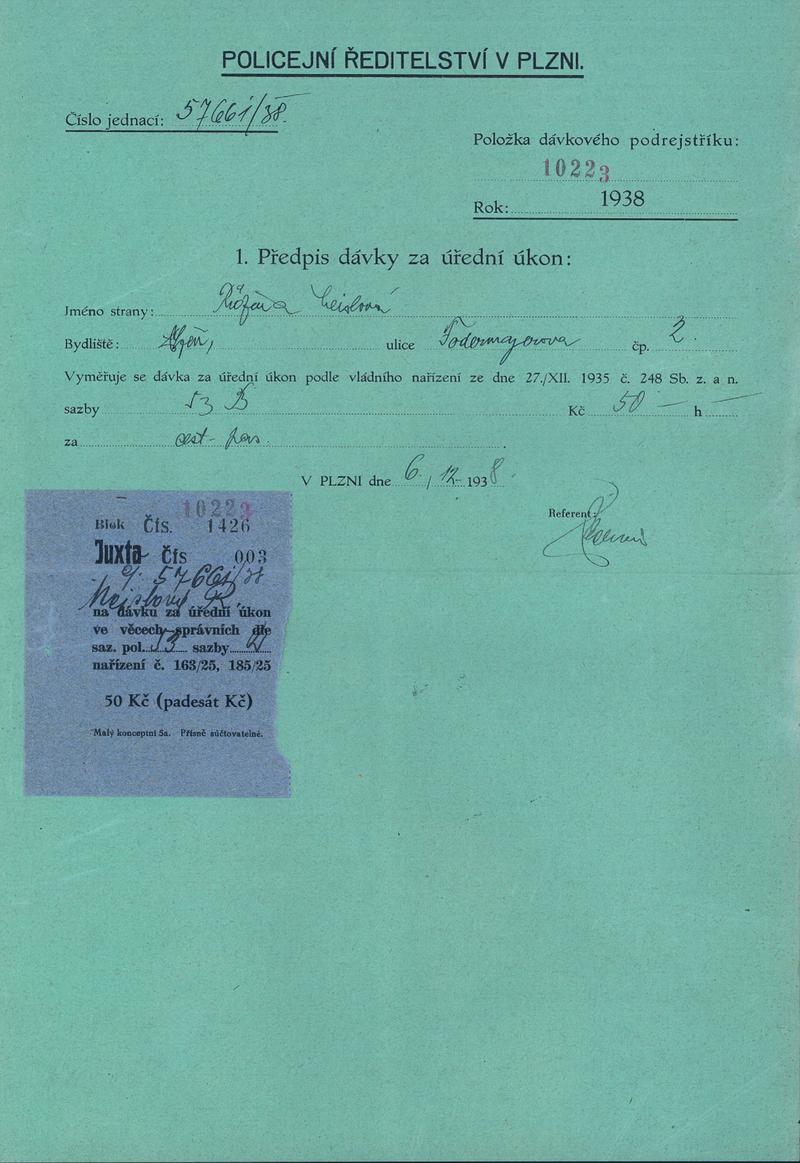 POLICEJNÍ ŘEDITELSTVÍ V PLZNI.
Číslo jednací: 57661/38.
Položka dávkového podrejstříku:
10223
Rok: 1938
1. Předpis dávky za úřední úkon:
Jméno strany: Růžena
Bydliště: Plzeň, ulice čp. 2.
Vyměřuje se dávka za úřední úkon podle vládního nařízení ze dne 27./XII. 1935 č. 248 Sb. z. a n.
sazby 53 B Kč 50 — h —
za cest. pas.
V PLZNI dne 6./12. 1938
Referent:
10223
Blok Čís. 1426
Juxta Čís 003
57661/38
na dávku za úřední úkon
ve věcech správních dle
saz. pol. 53 sazby
nařízení č. 163/25, 185/25
50 Kč (padesát Kč)
Malý konceptní 5a. Přísně súčtovatelné.